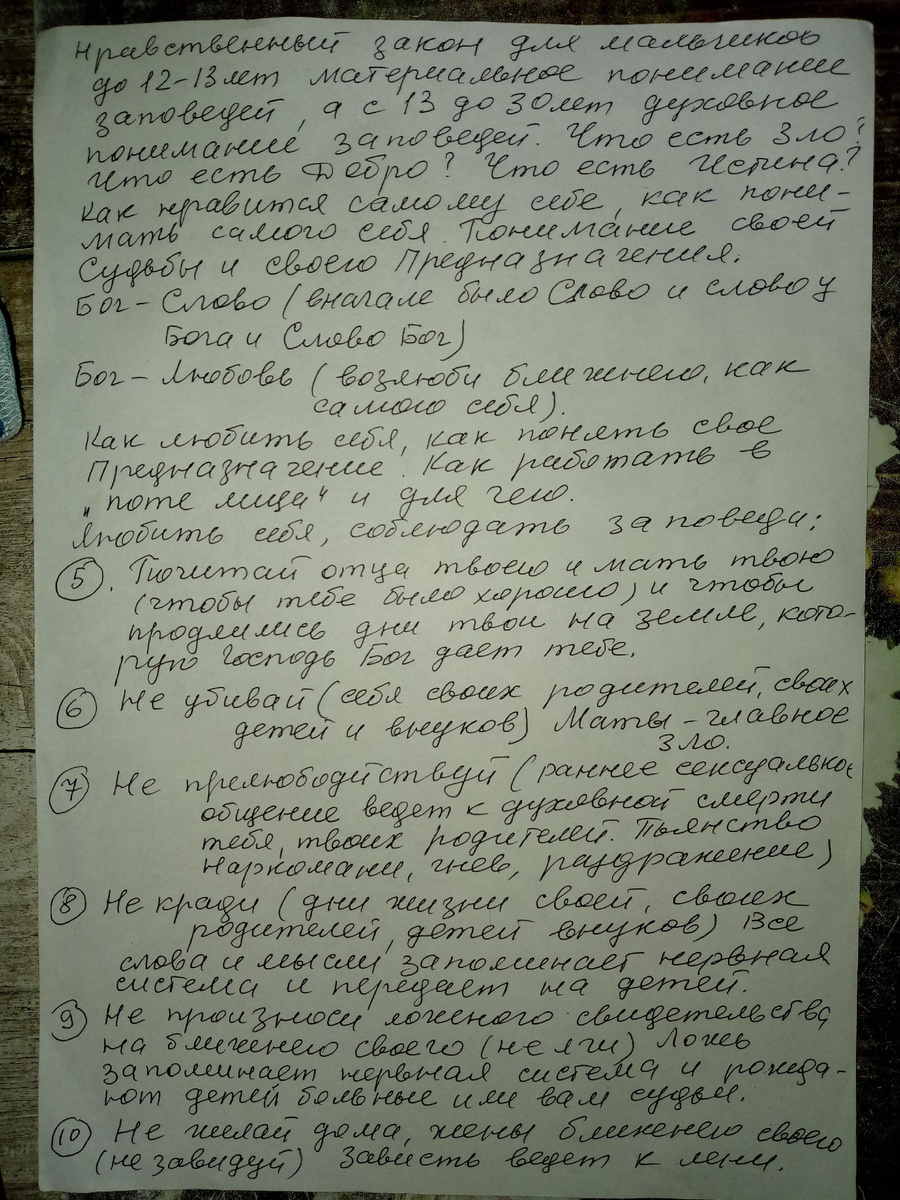 Нравственный закон для мальчиков
до 12-13 лет материальное понимание
заповедей, а с 13 до 30 лет духовное
понимание заповедей. Что есть Зло?
Что есть Добро? Что есть Истина?
Как нравится самому себе, как пони-
мать самого себя. Понимание своей
Судьбы и своего Предназначения.
Бог - Слово (вначале было Слово и слово у
Бога и Слово Бог)
Бог - Любовь (возлюби ближнего, как
самого себя).
Как любить себя, как понять свое
Предназначение. Как работать в
„поте лица" и для чего.
Любить себя, соблюдать заповеди:
5. Почитай отца твоего и мать твою
(чтобы тебе было хорошо) и чтобы
продлились дни твои на земле, кото-
рую Господь Бог дает тебе.
6 Не убивай (себя своих родителей, своих
детей и внуков) Маты - главное
зло.
7 Не прелюбодйствуй (раннее сексуальное
общение ведет к духовной смерти
тебя, твоих родителей. Пьянство
наркомани, гнев, раздражение)
8 Не кради (дни жизни своей, своих
родителей, детей внуков) Все
слова и мысли запоминает нервная
система и передает на детей.
9 Не произноси ложного свидетельства
на ближнего своего (не лги) Ложь
запоминает нервная система и рожда-
ют детей больные или вам судьи.
10 Не желай дома, жены ближнего своего
(не завидуй) Зависть ведет к лени.